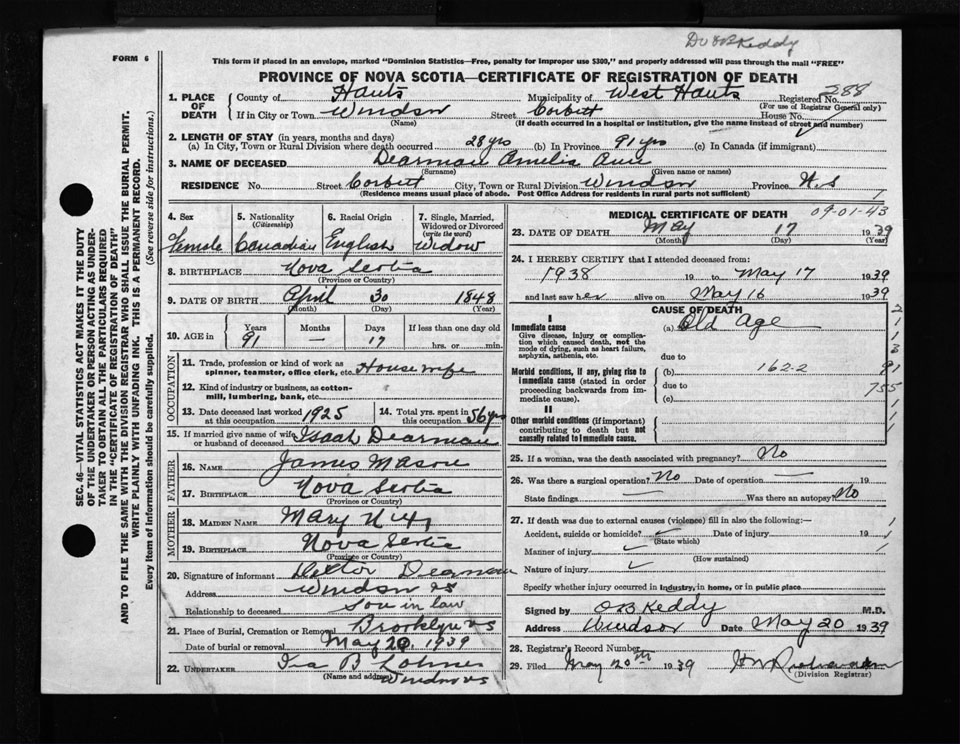 Dr OB Keddy
FORM 6
This form if placed in an envelope, marked "Dominion Statistics—Free, penalty for improper use $300," and properly addressed will pass through the mail "FREE"
PROVINCE OF NOVA SCOTIA—CERTIFICATE OF REGISTRATION OF DEATH
1. PLACE OF DEATH
County of Hants Municipality of West Hants Registered No. 288
(For use of Registrar General only)
If in City or Town Windsor Street Corbett House No.
(Name) (If death occurred in a hospital or institution, give the name instead of street and number)
2. LENGTH OF STAY (in years, months and days)
(a) In City, Town or Rural Division where death occurred 28 yrs (b) In Province 91 yrs (c) In Canada (if immigrant)
3. NAME OF DECEASED Dearman Amelia
(Surname) (Given name or names)
RESIDENCE No. Street Corbett City, Town or Rural Division Windsor Province N.S
(Residence means usual place of abode. Post Office Address for residents in rural parts not sufficient)
4. Sex 5. Nationality 6. Racial Origin 7. Single, Married, Widowed or Divorced
(Citizenship) (write the word)
Female Canadian English Widow
8. BIRTHPLACE Nova Scotia
(Province or Country)
9. DATE OF BIRTH April 30 1848
(Month) (Day) (Year)
10. AGE in Years Months Days If less than one day old
91 — 17 hrs. or min.
OCCUPATION
11. Trade, profession or kind of work as spinner, teamster, office clerk, etc. House wife
12. Kind of industry or business, as cotton-mill, lumbering, bank, etc.
13. Date deceased last worked at this occupation 1925 14. Total yrs. spent in this occupation 56 yrs
15. If married give name of wife or husband of deceased Isaah Dearman
FATHER
16. NAME James Mason
17. BIRTHPLACE Nova Scotia
(Province or Country)
MOTHER
18. MAIDEN NAME Mary
19. BIRTHPLACE Nova Scotia
(Province or Country)
20. Signature of informant Dearman
Address Windsor NS
Relationship to deceased Son in law
21. Place of Burial, Cremation or Removal Brooklyn NS
Date of burial or removal May 20, 1939
22. UNDERTAKER Ira B
(Name and address) Windsor NS
MEDICAL CERTIFICATE OF DEATH 09-01-43
23. DATE OF DEATH May 17 1939
(Month) (Day) (Year)
24. I HEREBY CERTIFY that I attended deceased from:
1938 19 to May 17 1939
and last saw her alive on May 16 1939
CAUSE OF DEATH
I
Immediate cause (a) Old Age
Give disease, injury or complication which caused death, not the mode of dying, such as heart failure, asphyxia, asthenia, etc.
due to
Morbid conditions, if any, giving rise to immediate cause (stated in order proceeding backwards from immediate cause).
(b) 162-2
due to
(c)
II
Other morbid conditions (if important) contributing to death but not causally related to immediate cause.
2
1
1
3
91
755
1
1
25. If a woman, was the death associated with pregnancy? No
26. Was there a surgical operation? No Date of operation — 19
State findings — Was there an autopsy? No
27. If death was due to external causes (violence) fill in also the following:—
Accident, suicide or homicide? Date of injury 19
(State which)
Manner of injury
(How sustained)
Nature of injury
Specify whether injury occurred in industry, in home, or in public place
Signed by OB Keddy M.D.
Address Windsor Date May 20 1939
28. Registrar's Record Number
29. Filed May 20th 1939
(Division Registrar)
SEC. 46—VITAL STATISTICS ACT MAKES IT THE DUTY
OF THE UNDERTAKER OR PERSON ACTING AS UNDER-
TAKER TO OBTAIN ALL THE PARTICULARS REQUIRED
IN THE "CERTIFICATE OF REGISTRATION OF DEATH"
AND TO FILE THE SAME WITH THE DIVISION REGISTRAR WHO SHALL ISSUE THE BURIAL PERMIT.
WRITE PLAINLY WITH UNFADING INK. THIS IS A PERMANENT RECORD.
Every item of information should be carefully supplied. (See reverse side for instructions.)